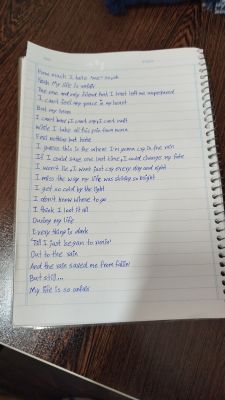 How much I hate that
Yeah My life is unfair
The one and only friend that I trust left me unprepared
I can't find any peace in my heart
But my brain
I can't hear, I can't cry, I can't wait
While I take all this pain
Feel nothing but hate
I guess this is the where I'm gonna cry in the rain
If I could save one last time, I could change my fate
I won't lie, I want just cry every day and night
I miss the way my life was shining so bright
I get so cold by the light
I don't know where to go
I think I lost it all
During my life
Every thing is dark
'Till I just began to runnin'
Out to the rain
And the rain saved me from fallin'
But still...
My life is so unfair